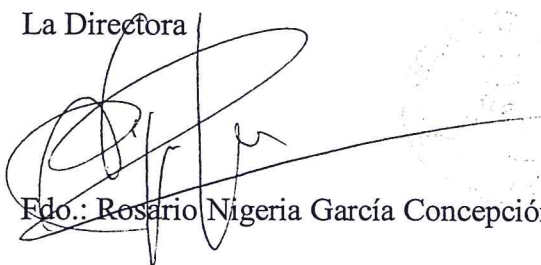 La Directora
Fdo.: Rosario Nigeria García Concepción